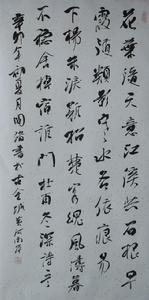 花葉隨天意江溪共石根早
霞隨類影寒水各依痕易
下楊朱淚難招楚客魂風濤暮
不穩捨棹宿誰門杜甫冬深詩
辛卯年初夏月書於古金城